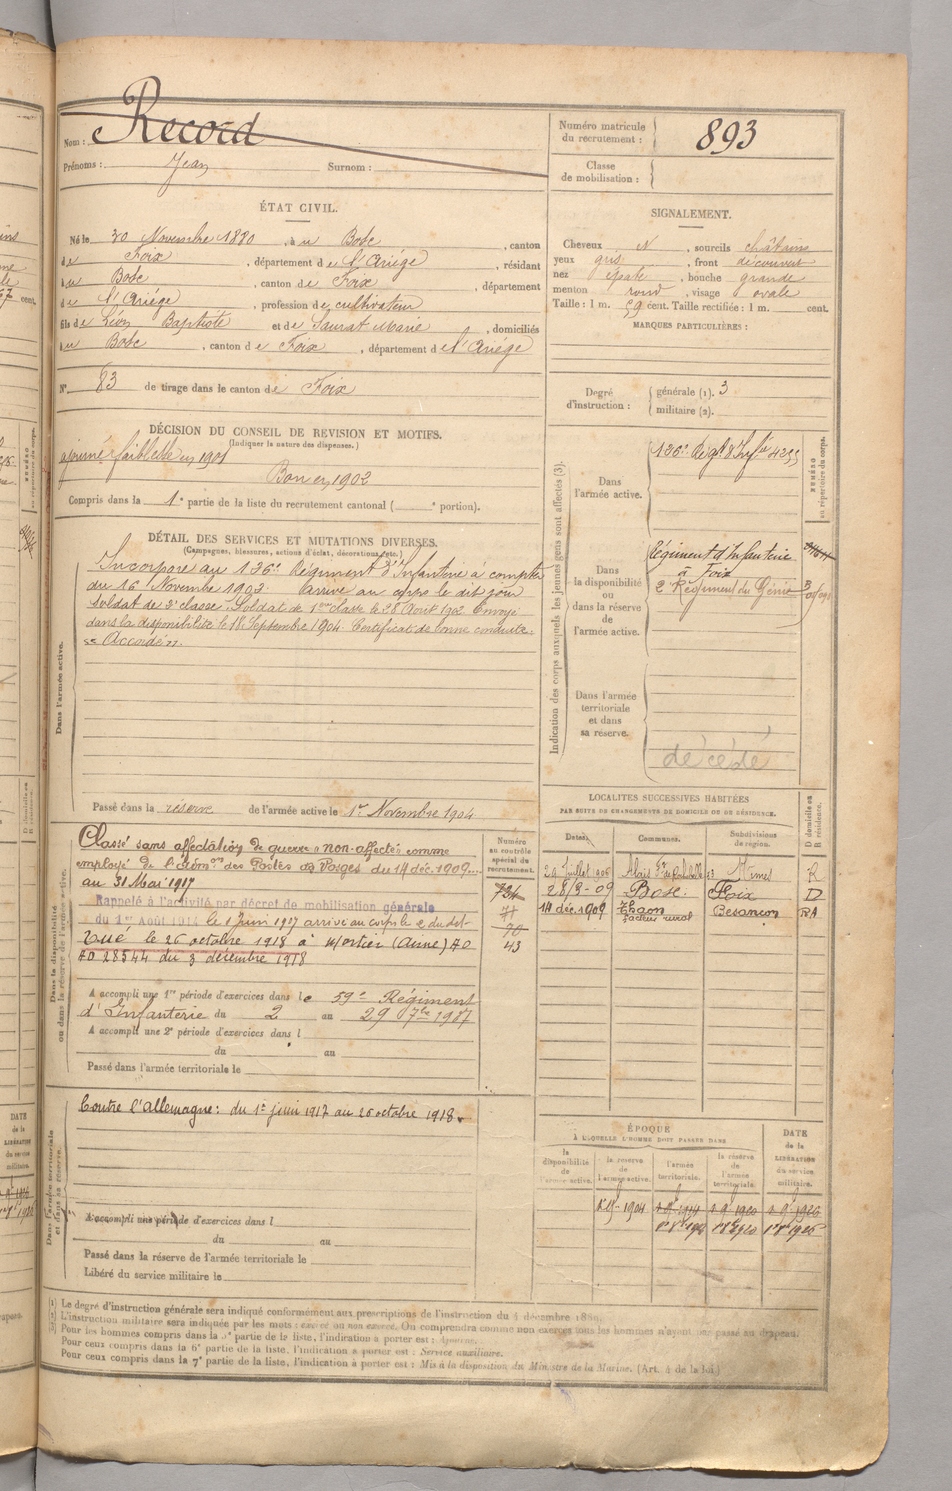 Nom : Record
Prénoms : Jean Surnom :
Numéro matricule du recrutement : 893
Classe de mobilisation :
ÉTAT CIVIL.
Né le 30 Novembre 1880, à u Bosc, canton
de Foix, département de l'Ariége, résidant
à u Bosc, canton de Foix, département
de l'Ariége, profession de cultivateur
fils de Léon Baptiste et de Saurat Marie, domiciliés
à u Bosc, canton de Foix, département de l'Ariége
N° 83 de tirage dans le canton de Foix
SIGNALEMENT.
Cheveux N, sourcils châtains
yeux gris, front découvert
nez épaté, bouche grande
menton rond, visage ovale
Taille : 1 m. 59 cent. Taille rectifiée : 1 m. cent.
MARQUES PARTICULIÈRES :
Degré d'instruction : générale (1). 3
militaire (2).
DÉCISION DU CONSEIL DE REVISION ET MOTIFS.
(Indiquer la nature des dispenses.)
ajourné faiblesse en 1901
Bon en 1902
Compris dans la 1e partie de la liste du recrutement cantonal ( e portion).
DÉTAIL DES SERVICES ET MUTATIONS DIVERSES.
(Campagnes, blessures, actions d'éclat, décorations, etc.)
Dans l'armée active.
Incorporé au 126e Régiment d'Infanterie à compter
du 16 Novembre 1902. Arrivé au corps le dit jour
soldat de 2e classe. Soldat de 1ere classe le 28 Août
dans la disponibilité le 18 Septembre 1904. Certificat de bonne conduite
Accordé
Passé dans la réserve de l'armée active le 1er Novembre 1904
Indication des corps auxquels les jeunes gens sont affectés (3).
NUMÉRO au répertoire du corps.
Dans l'armée active.
126e Régt d'Infie
Dans la disponibilité ou dans la réserve de l'armée active.
Régiment d'Infanterie
à Foix
2 Régiment du Génie
Dans l'armée territoriale et dans sa réserve.
décédé
Dans la disponibilité ou dans la réserve de l'armée active.
Numéro au contrôle spécial du recrutement.
Classé sans affectation de guerre "non-affecté" comme
employé de l'Adm.on des Postes des Vosges du 14 déc. 1909
au 31 Mai 1917
Rappelé à l'activité par décret de mobilisation générale
du 1er Août 1914 le 1 Juin 1917 arrivé au corps le 2 du dit
Tué le 26 octobre 1918 à Mortier (Aisne) AO
AO 28544 du 3 décembre 1918
734
71
70
43
A accompli une 1re période d'exercices dans le 59e Régiment
d'Infanterie du 2 au 29 7bre
A accompli une 2e période d'exercices dans l
du au
Passé dans l'armée territoriale le
LOCALITÉS SUCCESSIVES HABITÉES
PAR SUITE DE CHANGEMENTS DE DOMICILE OU DE RÉSIDENCE.
Dates. Communes. Subdivisions de région. D domicile ou R résidence.
29 Juillet 1906 Alais Nimes R
28-3-09 Bosc Foix D
14 déc. 1909 Thaon facteur rural Besançon RA
Dans l'armée territoriale et dans sa réserve.
Contre l'Allemagne : du 1er juin 1917 au 26 octobre 1918.
A accompli une période d'exercices dans l
du au
Passé dans la réserve de l'armée territoriale le
Libéré du service militaire le
ÉPOQUE
À LAQUELLE L'HOMME DOIT PASSER DANS
la disponibilité de l'armée active. la réserve de l'armée active. l'armée territoriale. la réserve de l'armée territoriale.
DATE de la LIBÉRATION du service militaire.
(1) Le degré d'instruction générale sera indiqué conformément aux prescriptions de l'instruction du 4 décembre 1889.
(2) L'instruction militaire sera indiquée par les mots : exercé ou non exercé. On comprendra comme non exercés tous les hommes n'ayant pas passé au drapeau.
(3) Pour les hommes compris dans la 5e partie de la liste, l'indication à porter est : Ajourné.
Pour ceux compris dans la 6e partie de la liste, l'indication à porter est : Service auxiliaire.
Pour ceux compris dans la 7e partie de la liste, l'indication à porter est : Mis à la disposition du Ministre de la Marine. (Art. 4 de la loi.)